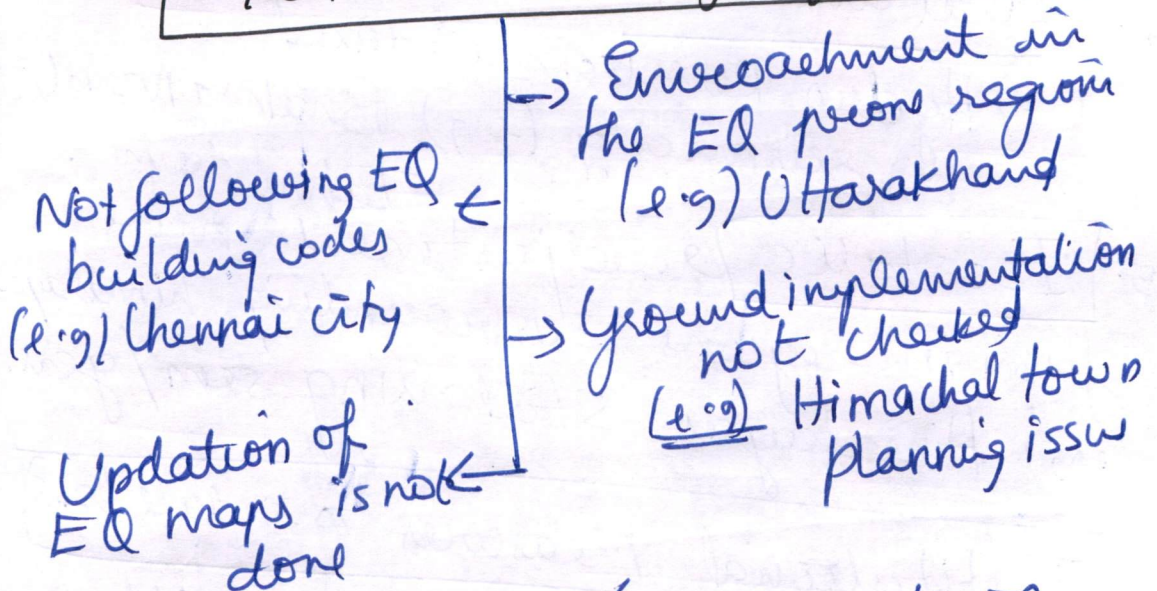 Encroachment in
the EQ prone region
(e.g) Uttarakhand
Not following EQ
building codes
(e.g) Chennai city
Ground implementation
not checked
(e.g) Himachal town
planning issue
Updation of
EQ maps is not
done